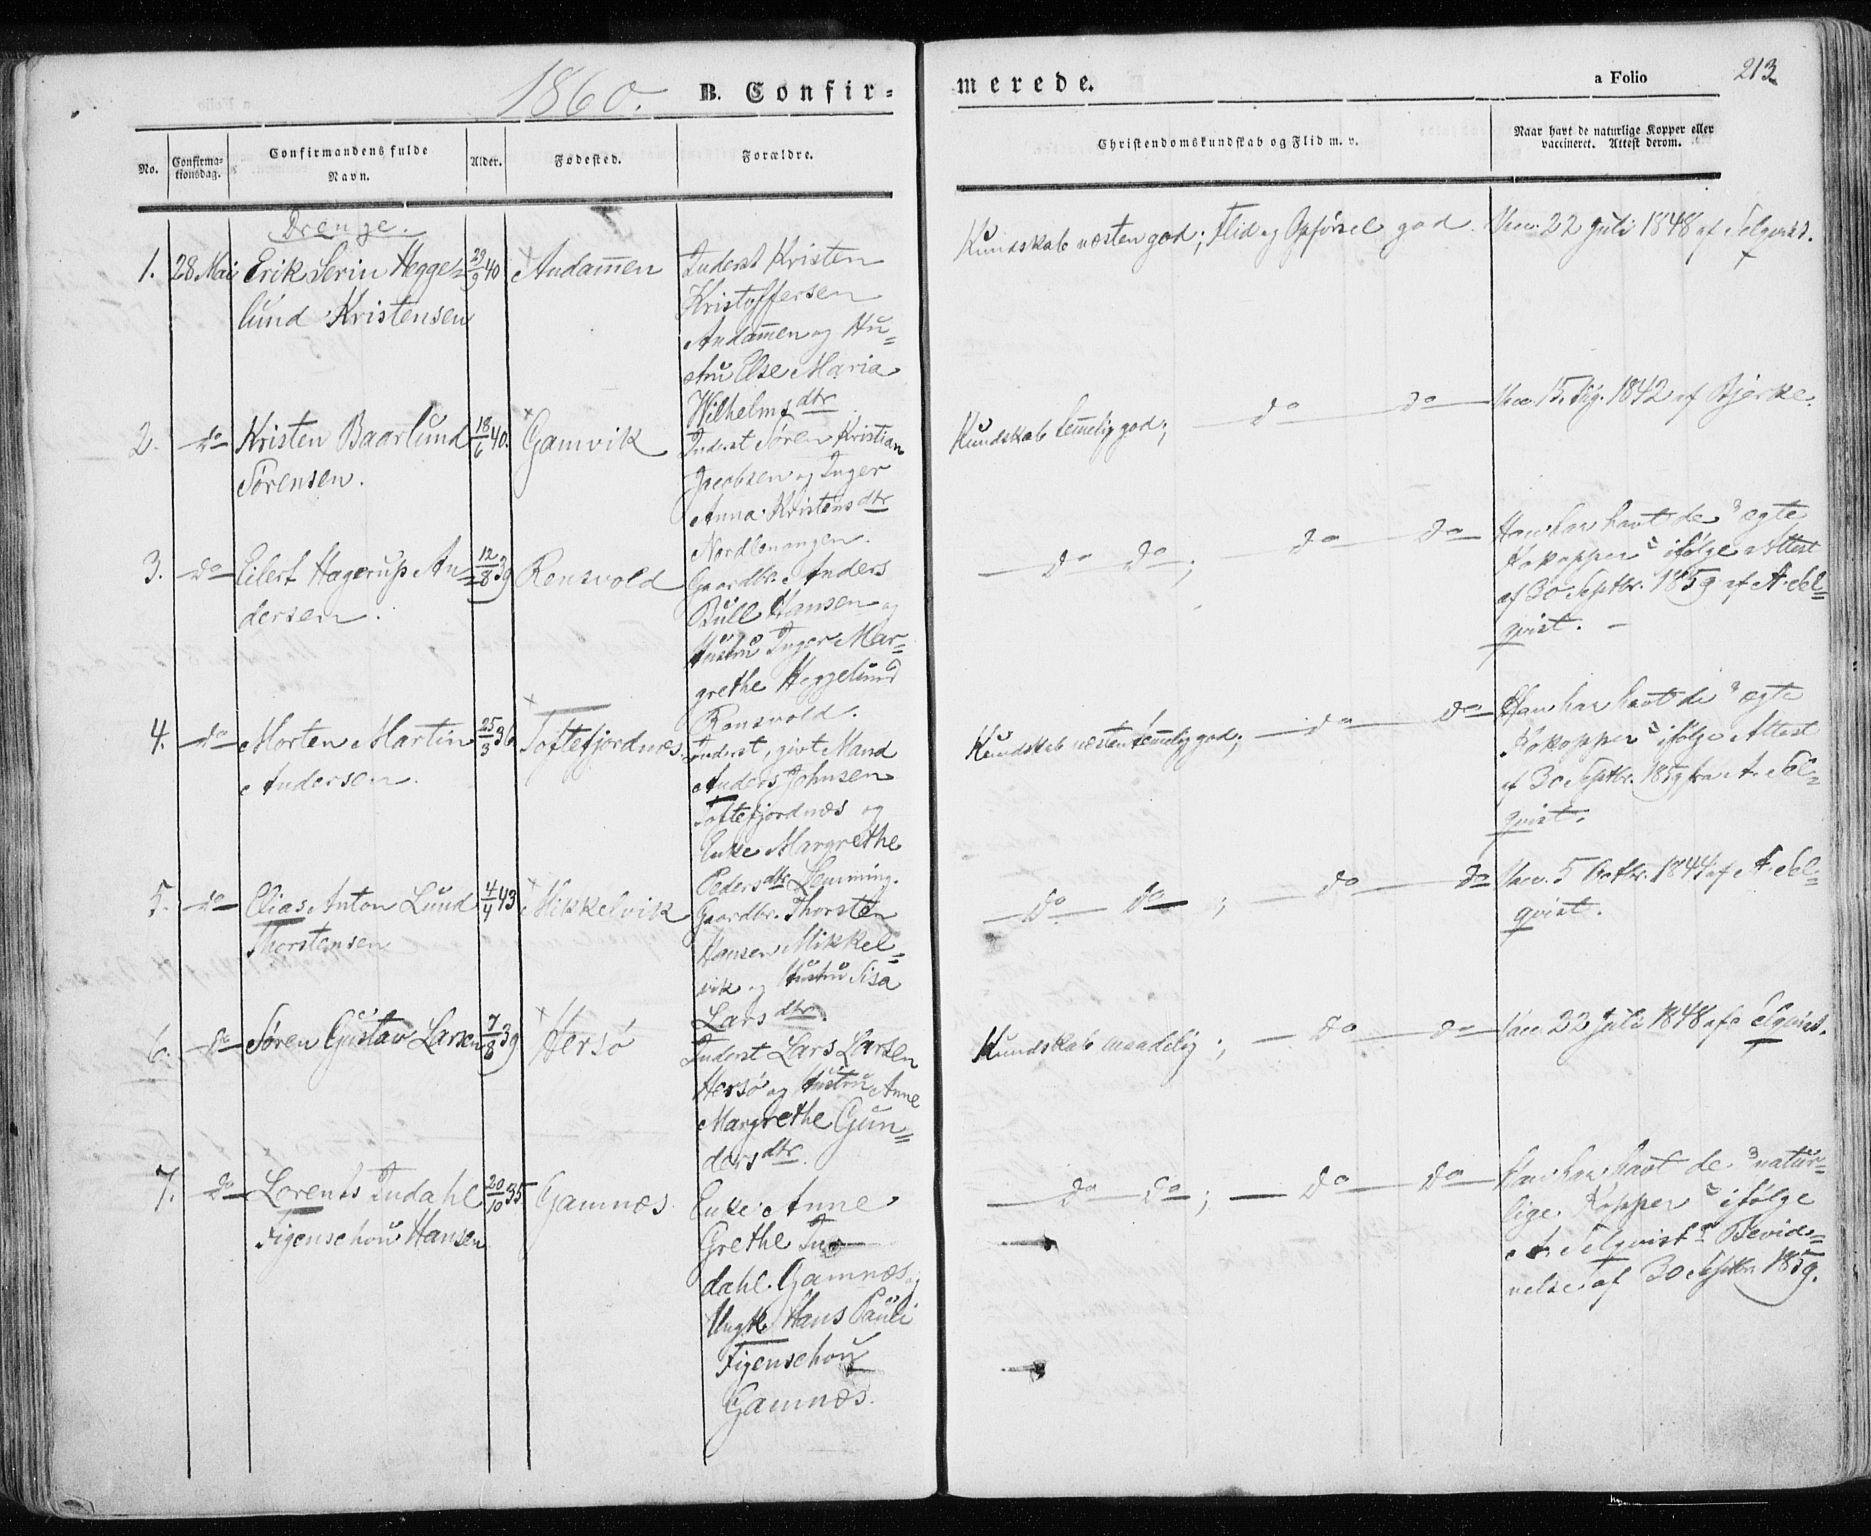 1860. B. Confirmerede. a Folio 213
No. Confirmationsdag. Confirmandens fulde Navn. Alder. Fødested. Forældre. Christendomskundskab og Flid m. v. Naar havt de naturlige Kopper eller vaccineret. Attest derom.
Drenge.
1. 28 Mai Erik Serin Hegge= 29/9 40 Andammen Inderst Kristen Kundskab næsten god; Flid og Opførsel god. Vacc. 22 Juli 1848 af Selqvist.
lund Kristensen Kristoffersen
Andammen og Hu=
stru Else Maria
Wilhelmsdtr
2. do Kristen Baarlund 18/6 40. Gamvik Inderst Søren Kristian Kundskab temmelig god; do do Vacc 15. 1842 af Bjerke.
Sørensen. Jacobsen og Inger
Anna Kristensdtr
Nordlenangen.
3. do Eilert Hagerup An= 12/8 39 Rensvold Gaardbr. Anders do do; do do Han har havt de "ægte
dersen. Bull Hansen og Kokopper" ifølge Attest
Hustru Inger Mar= af 30 Septbr. 1859 af A. Sel=
grethe Heggelund qvist.
Rensvold.
4. do Morten Martin 25/3 36 Toftefjordnæs Inderst, givt Mand Kundskab næsten temmelig god; do do Han har havt de "ægte
Andersen. Anders Johnsen Kokopper" ifølge Attest
Toftefjordnæs og af 30 Septbr. 1859 fra A. Sel=
Enke Margrethe qvist.
Pedersdtr Lemming.
5. do Elias Anton Lund 4/4 43 Mikkelvik Gaardbr. Thorsten do do; do do Vacc. 5 Octbr. 1844 af A. Sel=
Thorstensen Hansen Mikkel= qvist.
vik og Hustru Sisa
Larsdtr.
6. do Søren Gustav Larsen 7/8 39 Hersø Inderst Lars Larsen Kundskab maadelig; do do Vacc 22 Juli 1848 af Selqvist.
Hersø og Hustru Anne
Margrethe Gun=
dersdtr.
7. do Lorents Indahl 20/10 35 Gamnæs. Enke Anne do do; do do Han har havt de "natur=
Figenschou Hansen Grethe In= lige Kopper" ifølge
dahl Gamnæs og A. Selqvists Bevid=
Ungk. Hans Pauli nelse af 30 Septbr 1859.
Figenschou
Gamnæs.